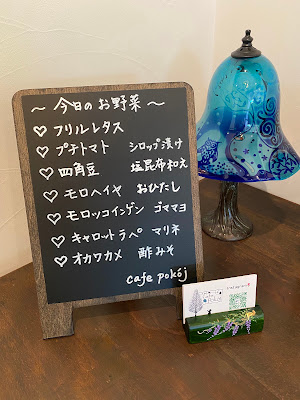 ～ 今日のお野菜 ～
♡ フリルレタス
♡ プチトマト シロップ漬け
♡ 四角豆 塩昆布和え
♡ モロヘイヤ おひたし
♡ モロッコインゲン ゴママヨ
♡ キャロットラペ マリネ
♡ オカワカメ 酢みそ
cafe pokój
Instagram